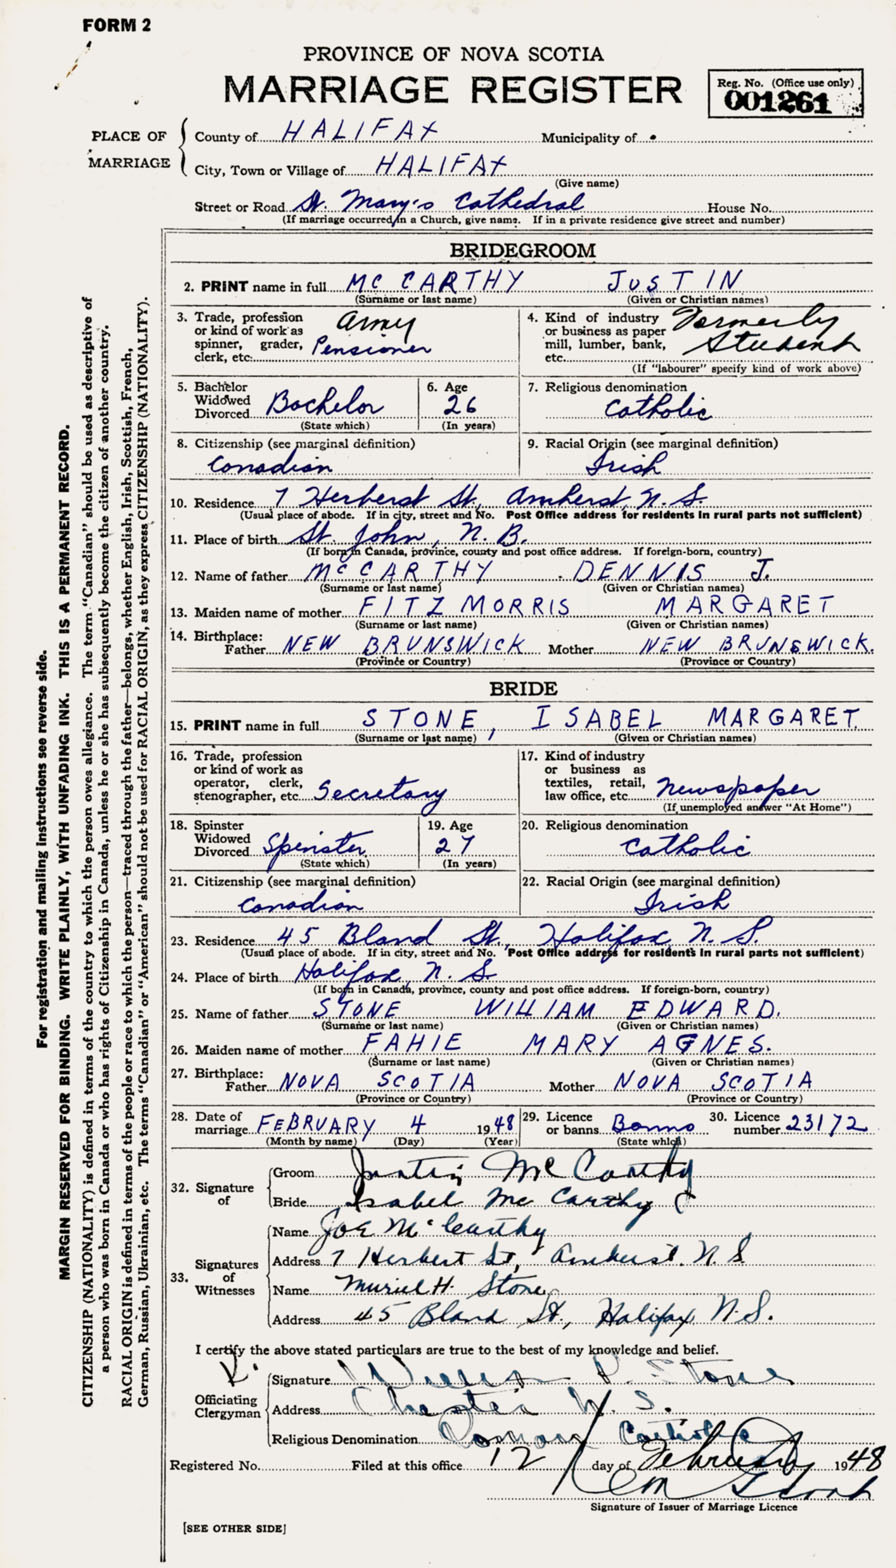 FORM 2
PROVINCE OF NOVA SCOTIA
MARRIAGE REGISTER
Reg. No. (Office use only)
001261
PLACE OF MARRIAGE
County of HALIFAX Municipality of
City, Town or Village of HALIFAX
(Give name)
Street or Road St. Mary's Cathedral House No.
(If marriage occurred in a Church, give name. If in a private residence give street and number)
BRIDEGROOM
2. PRINT name in full MCCARTHY JUSTIN
(Surname or last name) (Given or Christian names)
3. Trade, profession or kind of work as spinner, grader, clerk, etc. Army Pensioner
4. Kind of industry or business as paper mill, lumber, bank, etc. Formerly Student
(If "labourer" specify kind of work above)
5. Bachelor Widowed Divorced Bachelor
(State which)
6. Age 26
(In years)
7. Religious denomination
Catholic
8. Citizenship (see marginal definition)
Canadian
9. Racial Origin (see marginal definition)
Irish
10. Residence 7 Herberst St, Amherst, N.S.
(Usual place of abode. If in city, street and No. Post Office address for residents in rural parts not sufficient)
11. Place of birth St. John, N.B.
(If born in Canada, province, county and post office address. If foreign-born, country)
12. Name of father McCARTHY DENNIS J.
(Surname or last name) (Given or Christian names)
13. Maiden name of mother FITZMORRIS MARGARET
(Surname or last name) (Given or Christian names)
14. Birthplace:
Father NEW BRUNSWICK Mother NEW BRUNSWICK.
(Province or Country) (Province or Country)
BRIDE
15. PRINT name in full STONE, ISABEL MARGARET
(Surname or last name) (Given or Christian names)
16. Trade, profession or kind of work as operator, clerk, stenographer, etc. Secretary
17. Kind of industry or business as textiles, retail, law office, etc. Newspaper
(If unemployed answer "At Home")
18. Spinster Widowed Divorced Spinster
(State which)
19. Age 27
(In years)
20. Religious denomination
Catholic
21. Citizenship (see marginal definition)
Canadian
22. Racial Origin (see marginal definition)
Irish
23. Residence 45 Bland St. Halifax N.S.
(Usual place of abode. If in city, street and No. Post Office address for residents in rural parts not sufficient)
24. Place of birth Halifax, N.S
(If born in Canada, province, county and post office address. If foreign-born, country)
25. Name of father STONE WILLIAM EDWARD.
(Surname or last name) (Given or Christian names)
26. Maiden name of mother FAHIE MARY AGNES.
(Surname or last name) (Given or Christian names)
27. Birthplace:
Father NOVA SCOTIA Mother NOVA SCOTIA
(Province or Country) (Province or Country)
28. Date of marriage FEBRUARY 4 1948
(Month by name) (Day) (Year)
29. Licence or banns Banns
(State which)
30. Licence number 23172
32. Signature of
Groom Justin McCarthy
Bride Isabel McCarthy
33. Signatures of Witnesses
Name Joe McCarthy
Address 7 Herbert St, Amherst. N.S
Name Muriel H. Stone
Address 45 Bland St, Halifax N.S.
I certify the above stated particulars are true to the best of my knowledge and belief.
Officiating Clergyman
Signature P. Stone
Address Chester N.S.
Religious Denomination Roman Catholic
Registered No. Filed at this office 12 day of February 1948
Signature of Issuer of Marriage Licence
[SEE OTHER SIDE]
For registration and mailing instructions see reverse side.
MARGIN RESERVED FOR BINDING. WRITE PLAINLY, WITH UNFADING INK. THIS IS A PERMANENT RECORD.
CITIZENSHIP (NATIONALITY) is defined in terms of the country to which the person owes allegiance. The term "Canadian" should be used as descriptive of
a person who was born in Canada or who has rights of Citizenship in Canada, unless he or she has subsequently become the citizen of another country.
RACIAL ORIGIN is defined in terms of the people or race to which the person—traced through the father—belongs, whether English, Irish, Scottish, French,
German, Russian, Ukrainian, etc. The terms "Canadian" or "American" should not be used for RACIAL ORIGIN, as they express CITIZENSHIP (NATIONALITY).